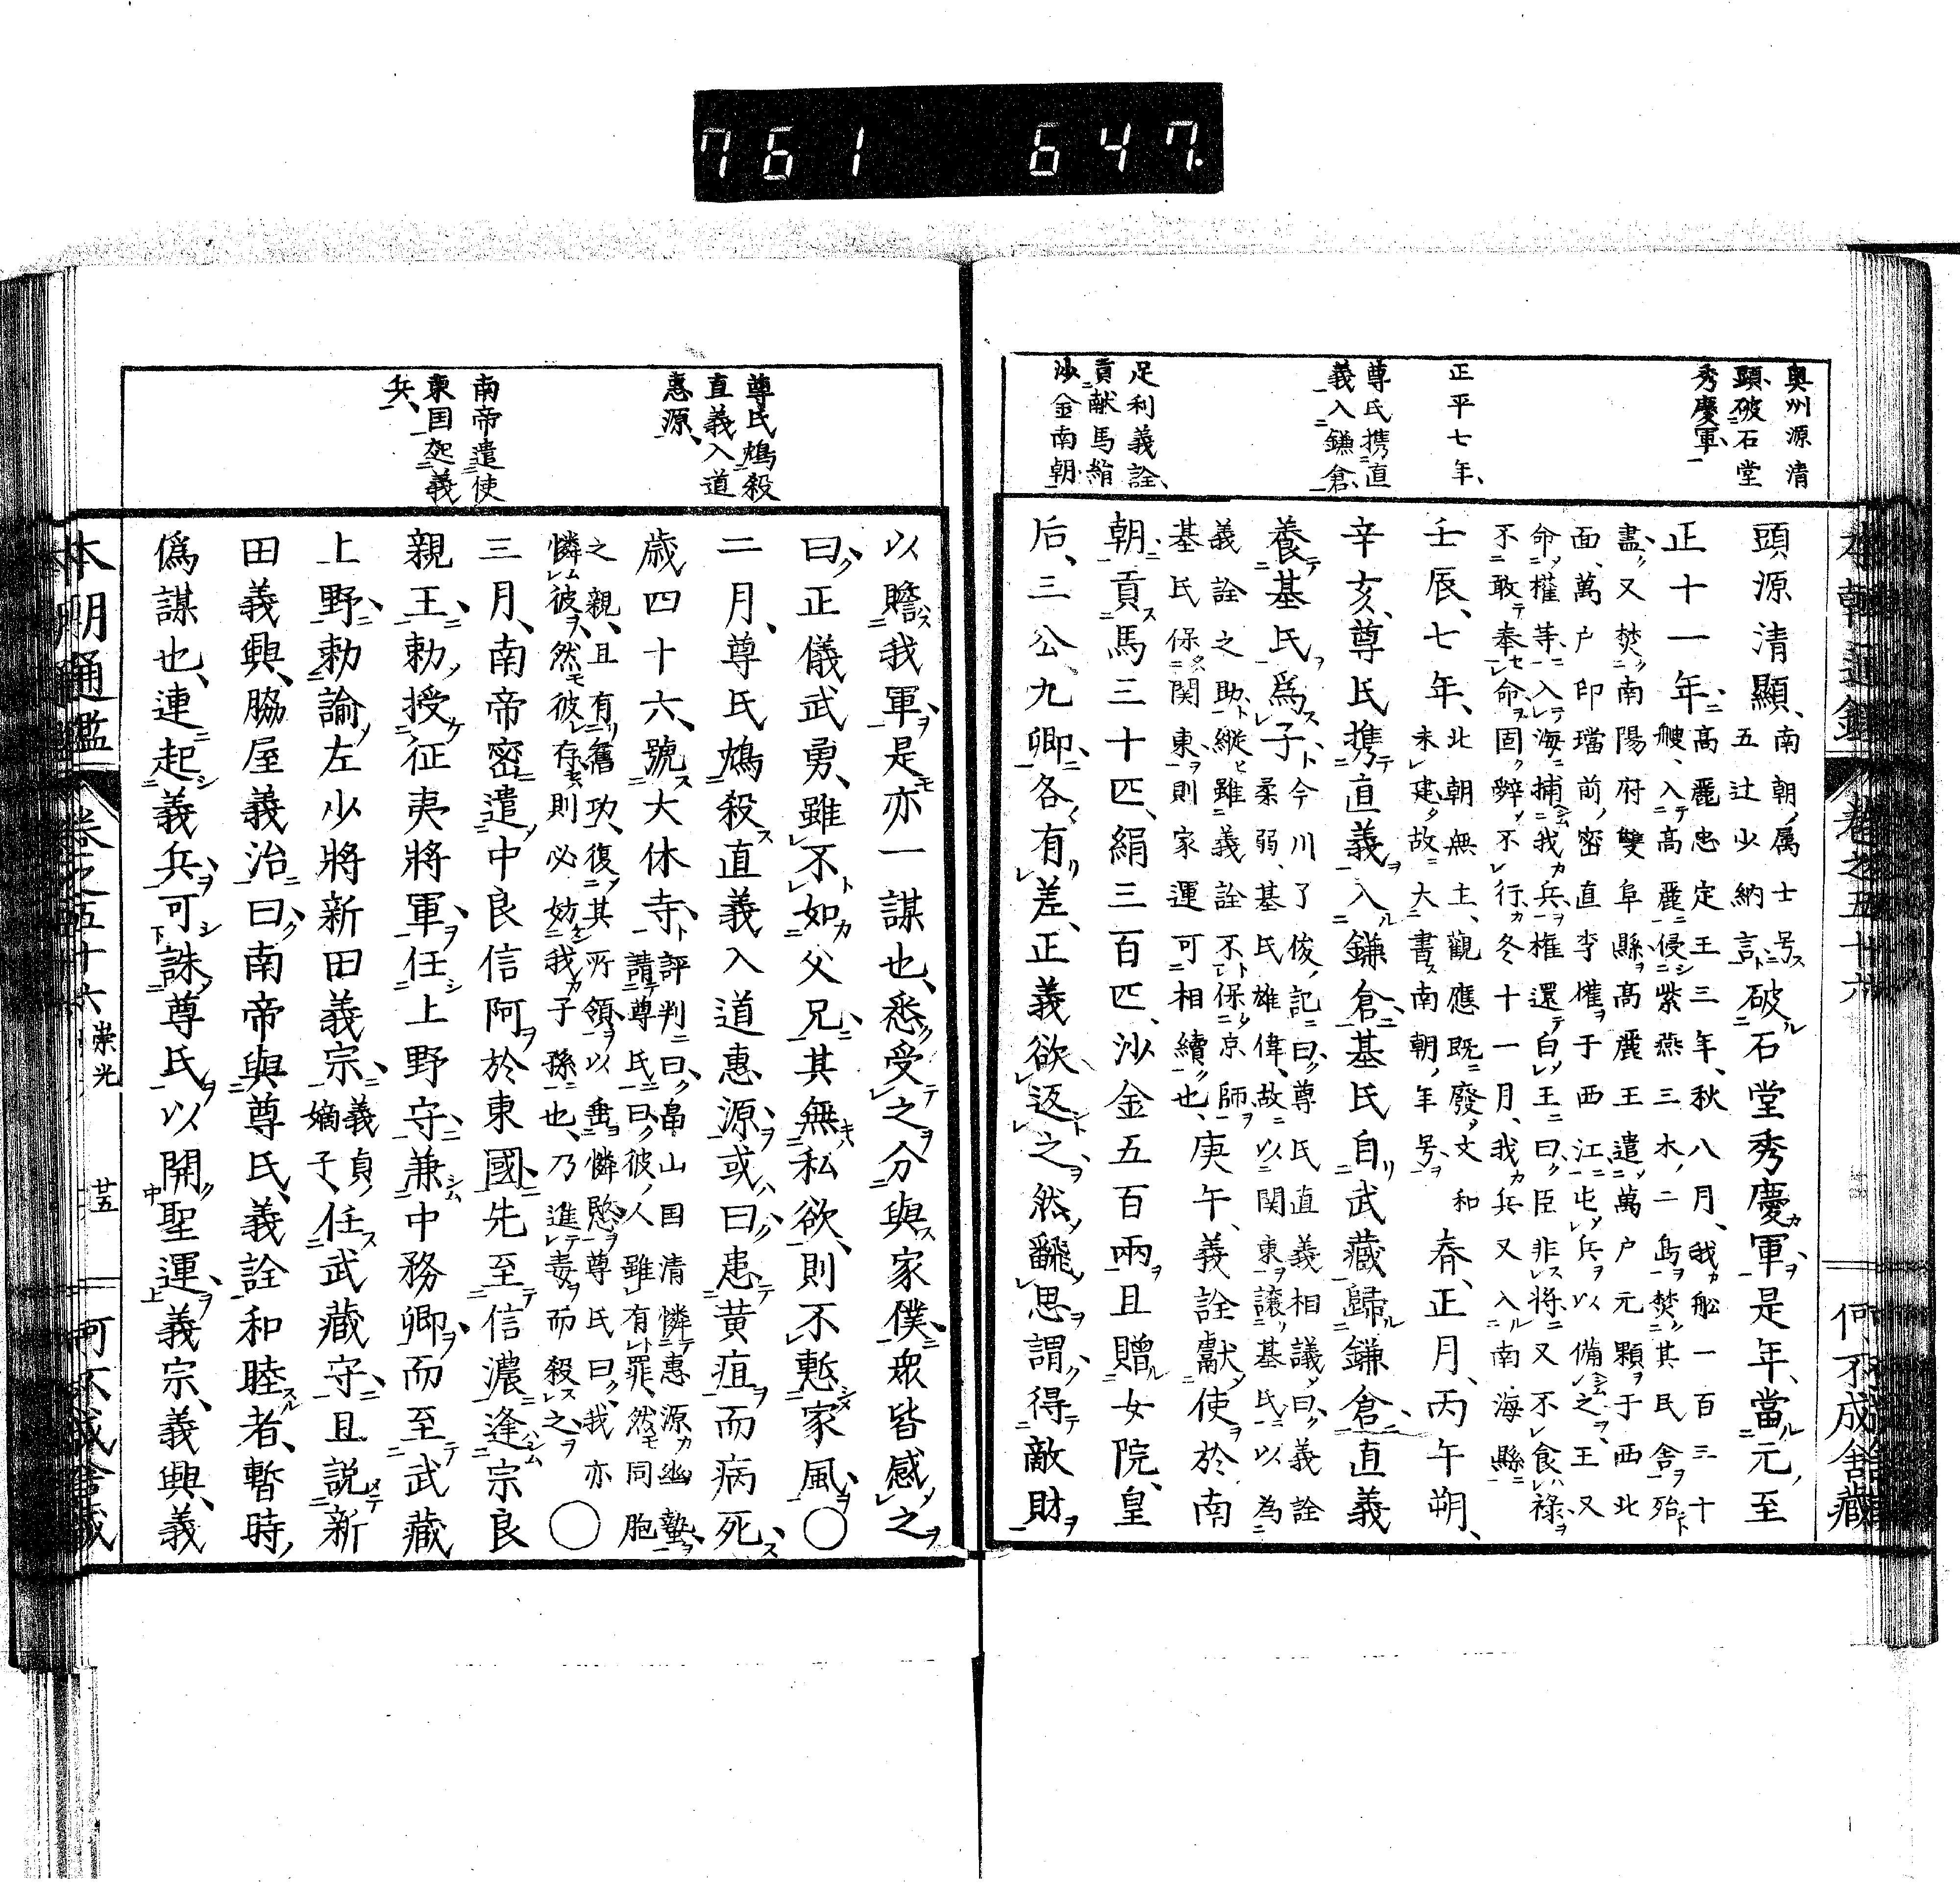 761 647.
本朝通鑑 卷之五十六 何不成舎藏
奥州源清
顕破石堂
秀慶軍
正平七年、
尊氏携直
義入鎌倉、
足利義詮、
貢献馬絹
沙金南朝
頭源清顯、
南朝属士号
五辻少納言
破石堂秀慶軍是年、當元至
正十一年
高麗忠定王三年、秋八月、我舩一百三十
艘、入高麗侵紫燕三木二島焚其民舍殆
盡、又焚南陽府雙阜縣高麗王遣萬户元顆于西北
面、萬户印璫前密直李懽于西江屯兵以備之王又
命權等入海捕我兵権還白王曰臣非將又不食禄
不敢奉命固辭不行冬十一月、我兵又入南海縣
壬辰、七年、
北朝無主、觀應既廢文和
未建故大書南朝年号
春、正月、丙午朔、
辛亥、尊氏携直義入鎌倉基氏自武藏歸鎌倉直義
養基氏爲子
今川了俊記曰尊氏直義相議曰義詮
柔弱、基氏雄偉、故以関東讓基氏以為
義詮之助縱雖義詮不保京師
基氏保関東則家運可相續也、
庚午、義詮獻使於南
朝、貢馬三十匹、絹三百匹、沙金五百兩且贈女院、皇
后、三公、九卿、各有差、正義欲返之然飜思謂得敵財
尊氏鴆殺
直義入道
惠源、
南帝遣使
東国起義
兵、
以贍我軍是亦一謀也、悉受之分與家僕衆皆感之
曰正儀武勇、雖不如父兄其無私欲、則不慙家風〇
二月、尊氏鴆殺直義入道惠源或曰患黄疸而病死、
歳四十六、號大休寺
評判曰畠山国清憐惠源幽蟄
請尊氏曰彼人雖有罪、然同胞
之親、且有舊功、復其所領以垂憐愍尊氏曰、我亦
憐彼然彼存則必妨我子孫也、乃進毒而殺之
〇
三月、南帝密遣中良信阿於東國先至信濃逢宗良
親王、勅授征夷將軍、任上野守兼中務卿而至武藏
上野勅諭左少將新田義宗、
義貞
嫡子、
任武藏守且説新
田義興、脇屋義治曰南帝與尊氏、義詮和睦者、暫時
偽謀也、連起義兵可誅尊氏以開聖運義宗、義興、義
本朝通鑑 卷之五十六 崇光 廿五 何不成舎藏